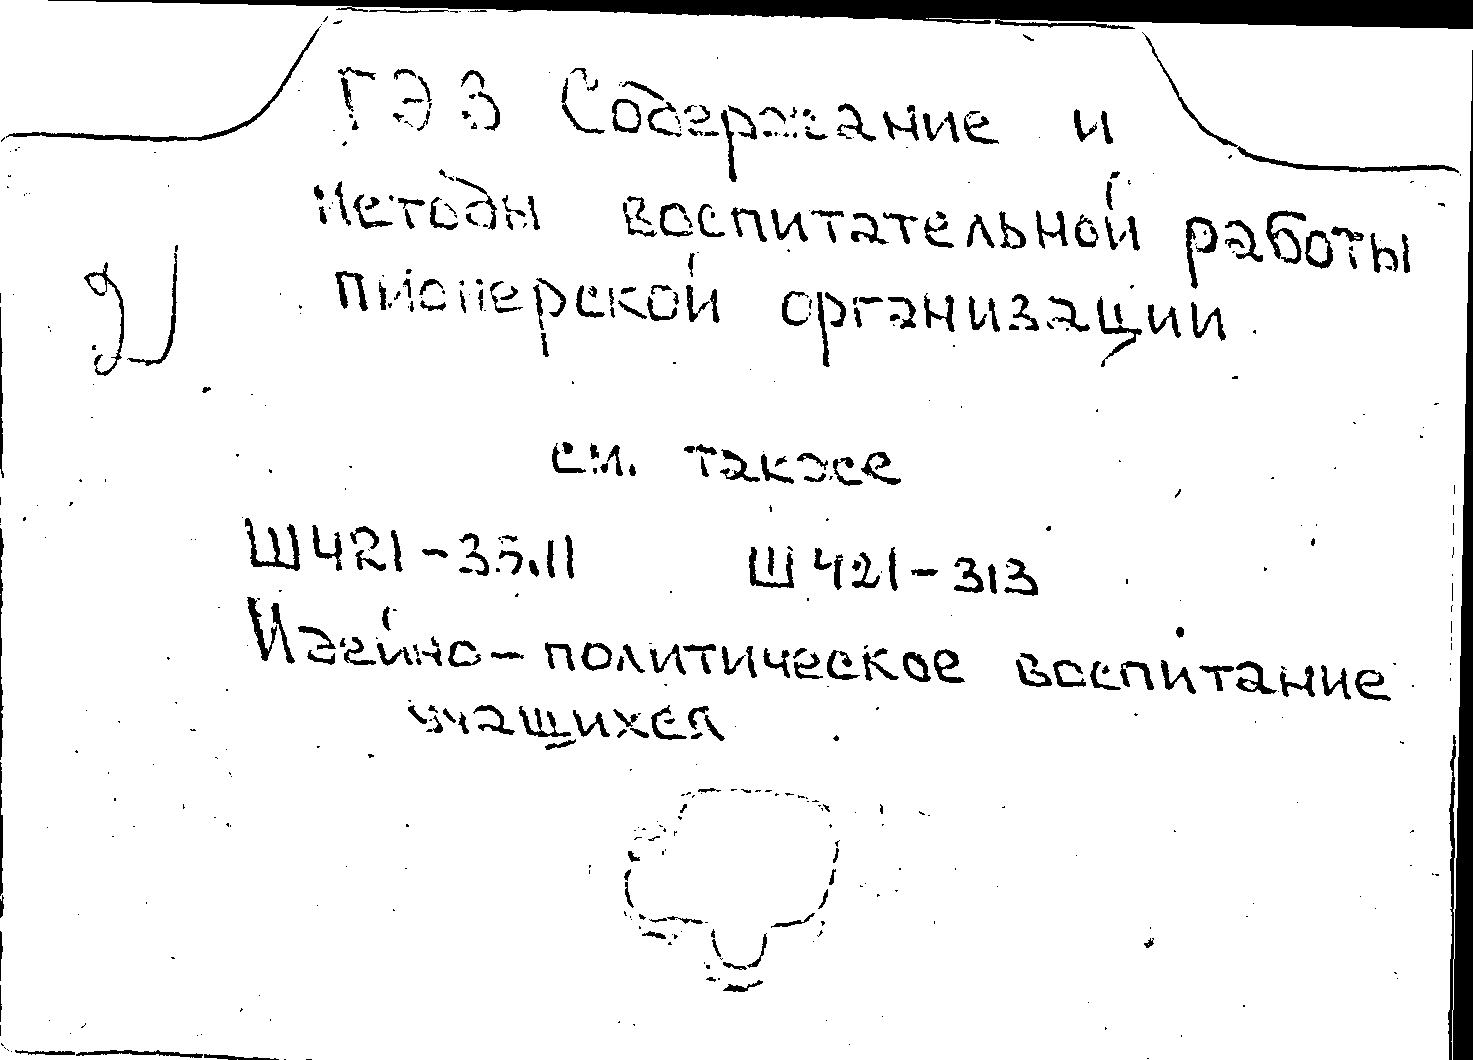 ГЭ3 Содержание и
методы воспитательной работы
пионерской организации.
см. также
Ш421-35.11 Ш421-313
Идейно-политическое воспитание
учащихся